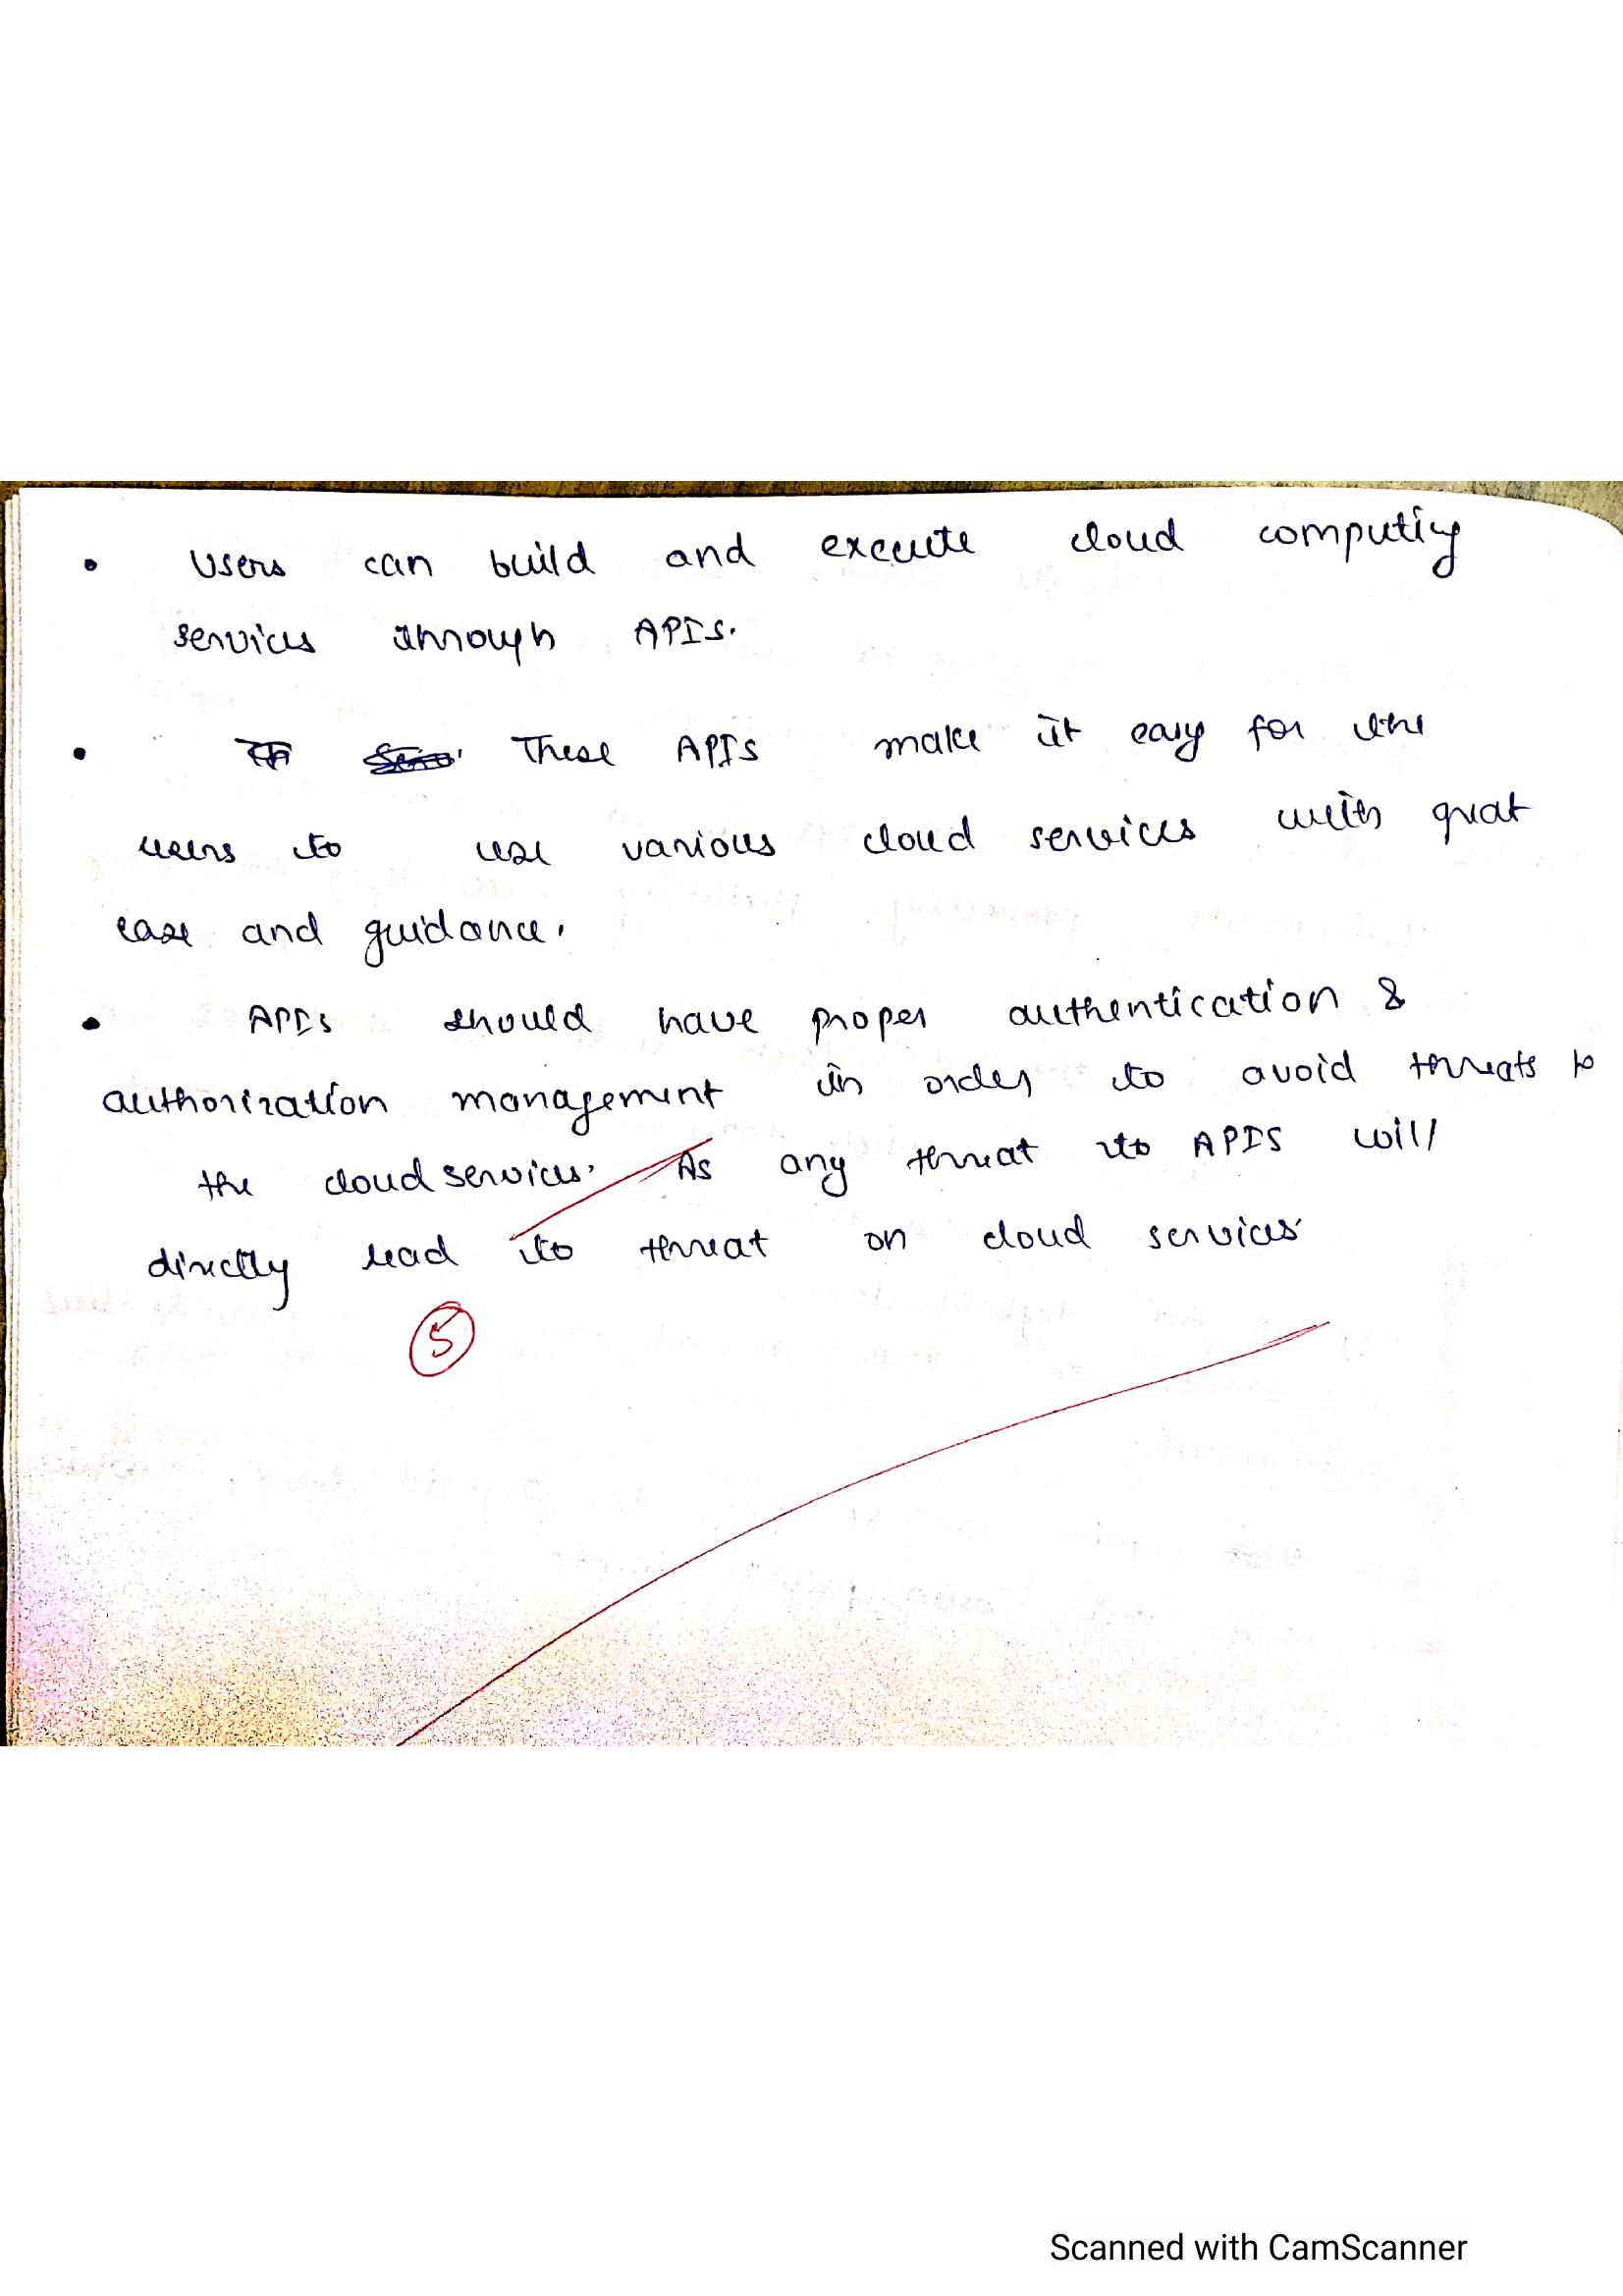 • Users can build and execute cloud computing
services through APIs.
• These APIs make it easy for the
users to use various cloud services with great
ease and guidance.
• APIs should have proper authentication &
authorization management in order to avoid threats to
the cloud services. As any threat to APIs will
directly lead to threat on cloud services
5
Scanned with CamScanner